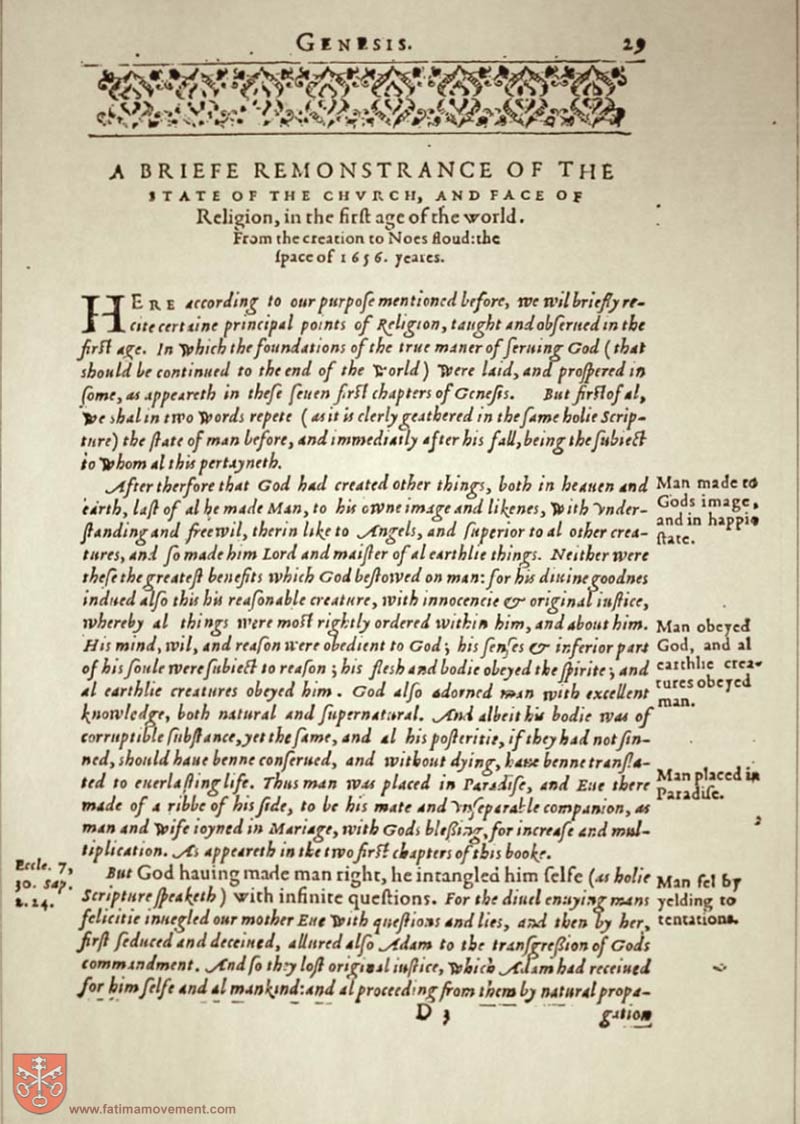 GENESIS. 29
A BRIEFE REMONSTRANCE OF THE
STATE OF THE CHVRCH, AND FACE OF
Religion, in the firſt age of the world.
From the creation to Noes floud: the
ſpace of 1656. yeares.
HERE according to our purpoſe mentioned before, we wil briefly re-
cite certaine principal points of Religion, taught and obſerued in the
firſt age. In which the foundations of the true maner of ſeruing God (that
should be continued to the end of the world) were laid, and proſpered in
ſome, as appeareth in theſe ſeuen firſt chapters of Geneſis. But firſt of al,
we shal in two words repete (as it is clerly geathered in the ſame holie Scrip-
ture) the ſtate of man before, and immediatly after his fall, being the ſubiect
to whom al this pertayneth.
After therfore that God had created other things, both in heauen and
earth, laſt of al he made Man, to his owne image and likenes, with vnder-
ſtanding and freewil, therin like to Angels, and ſuperior to al other crea-
tures, and ſo made him Lord and maiſter of al earthlie things. Neither were
theſe the greateſt benefits which God beſtowed on man: for his diuine goodnes
indued alſo this his reaſonable creature, with innocencie & original iuſtice,
whereby al things were moſt rightly ordered within him, and about him.
His mind, wil, and reaſon were obedient to God; his ſenſes & inferior part
of his ſoule were ſubiect to reaſon; his flesh and bodie obeyed the ſpirite; and
al earthlie creatures obeyed him. God alſo adorned man with excellent
knowledge, both natural and ſupernatural. And albeit his bodie was of
corruptible ſubſtance, yet the ſame, and al his poſteritie, if they had not ſin-
ned, should haue benne conſerued, and without dying, haue benne tranſla-
ted to euerlaſting life. Thus man was placed in Paradiſe, and Eue there
made of a ribbe of his ſide, to be his mate and vnſeparable companion, as
man and wife ioyned in Mariage, with Gods bleſsing, for increaſe and mul-
tiplication. As appeareth in the two firſt chapters of this booke.
But God hauing made man right, he intangled him ſelfe (as holie
Scripture ſpeaketh) with infinite queſtions. For the diuel enuying mans
felicitie inuegled our mother Eue with queſtions and lies, and then by her,
firſt ſeduced and deceiued, allured alſo Adam to the tranſgreſsion of Gods
commandment. And ſo they loſt original iuſtice, which Adam had receiued
for him ſelfe and al mankind: and al proceeding from them by natural propa-
D 3 gation
Man made to
Gods image,
and in happie
ſtate.
Man obeyed
God, and al
earthlie crea-
tures obeyed
man.
Man placed in
Paradiſe.
Eccle. 7,
30. Sap.
2. 24.
Man fel by
yelding to
tentation.
www.fatimamovement.com